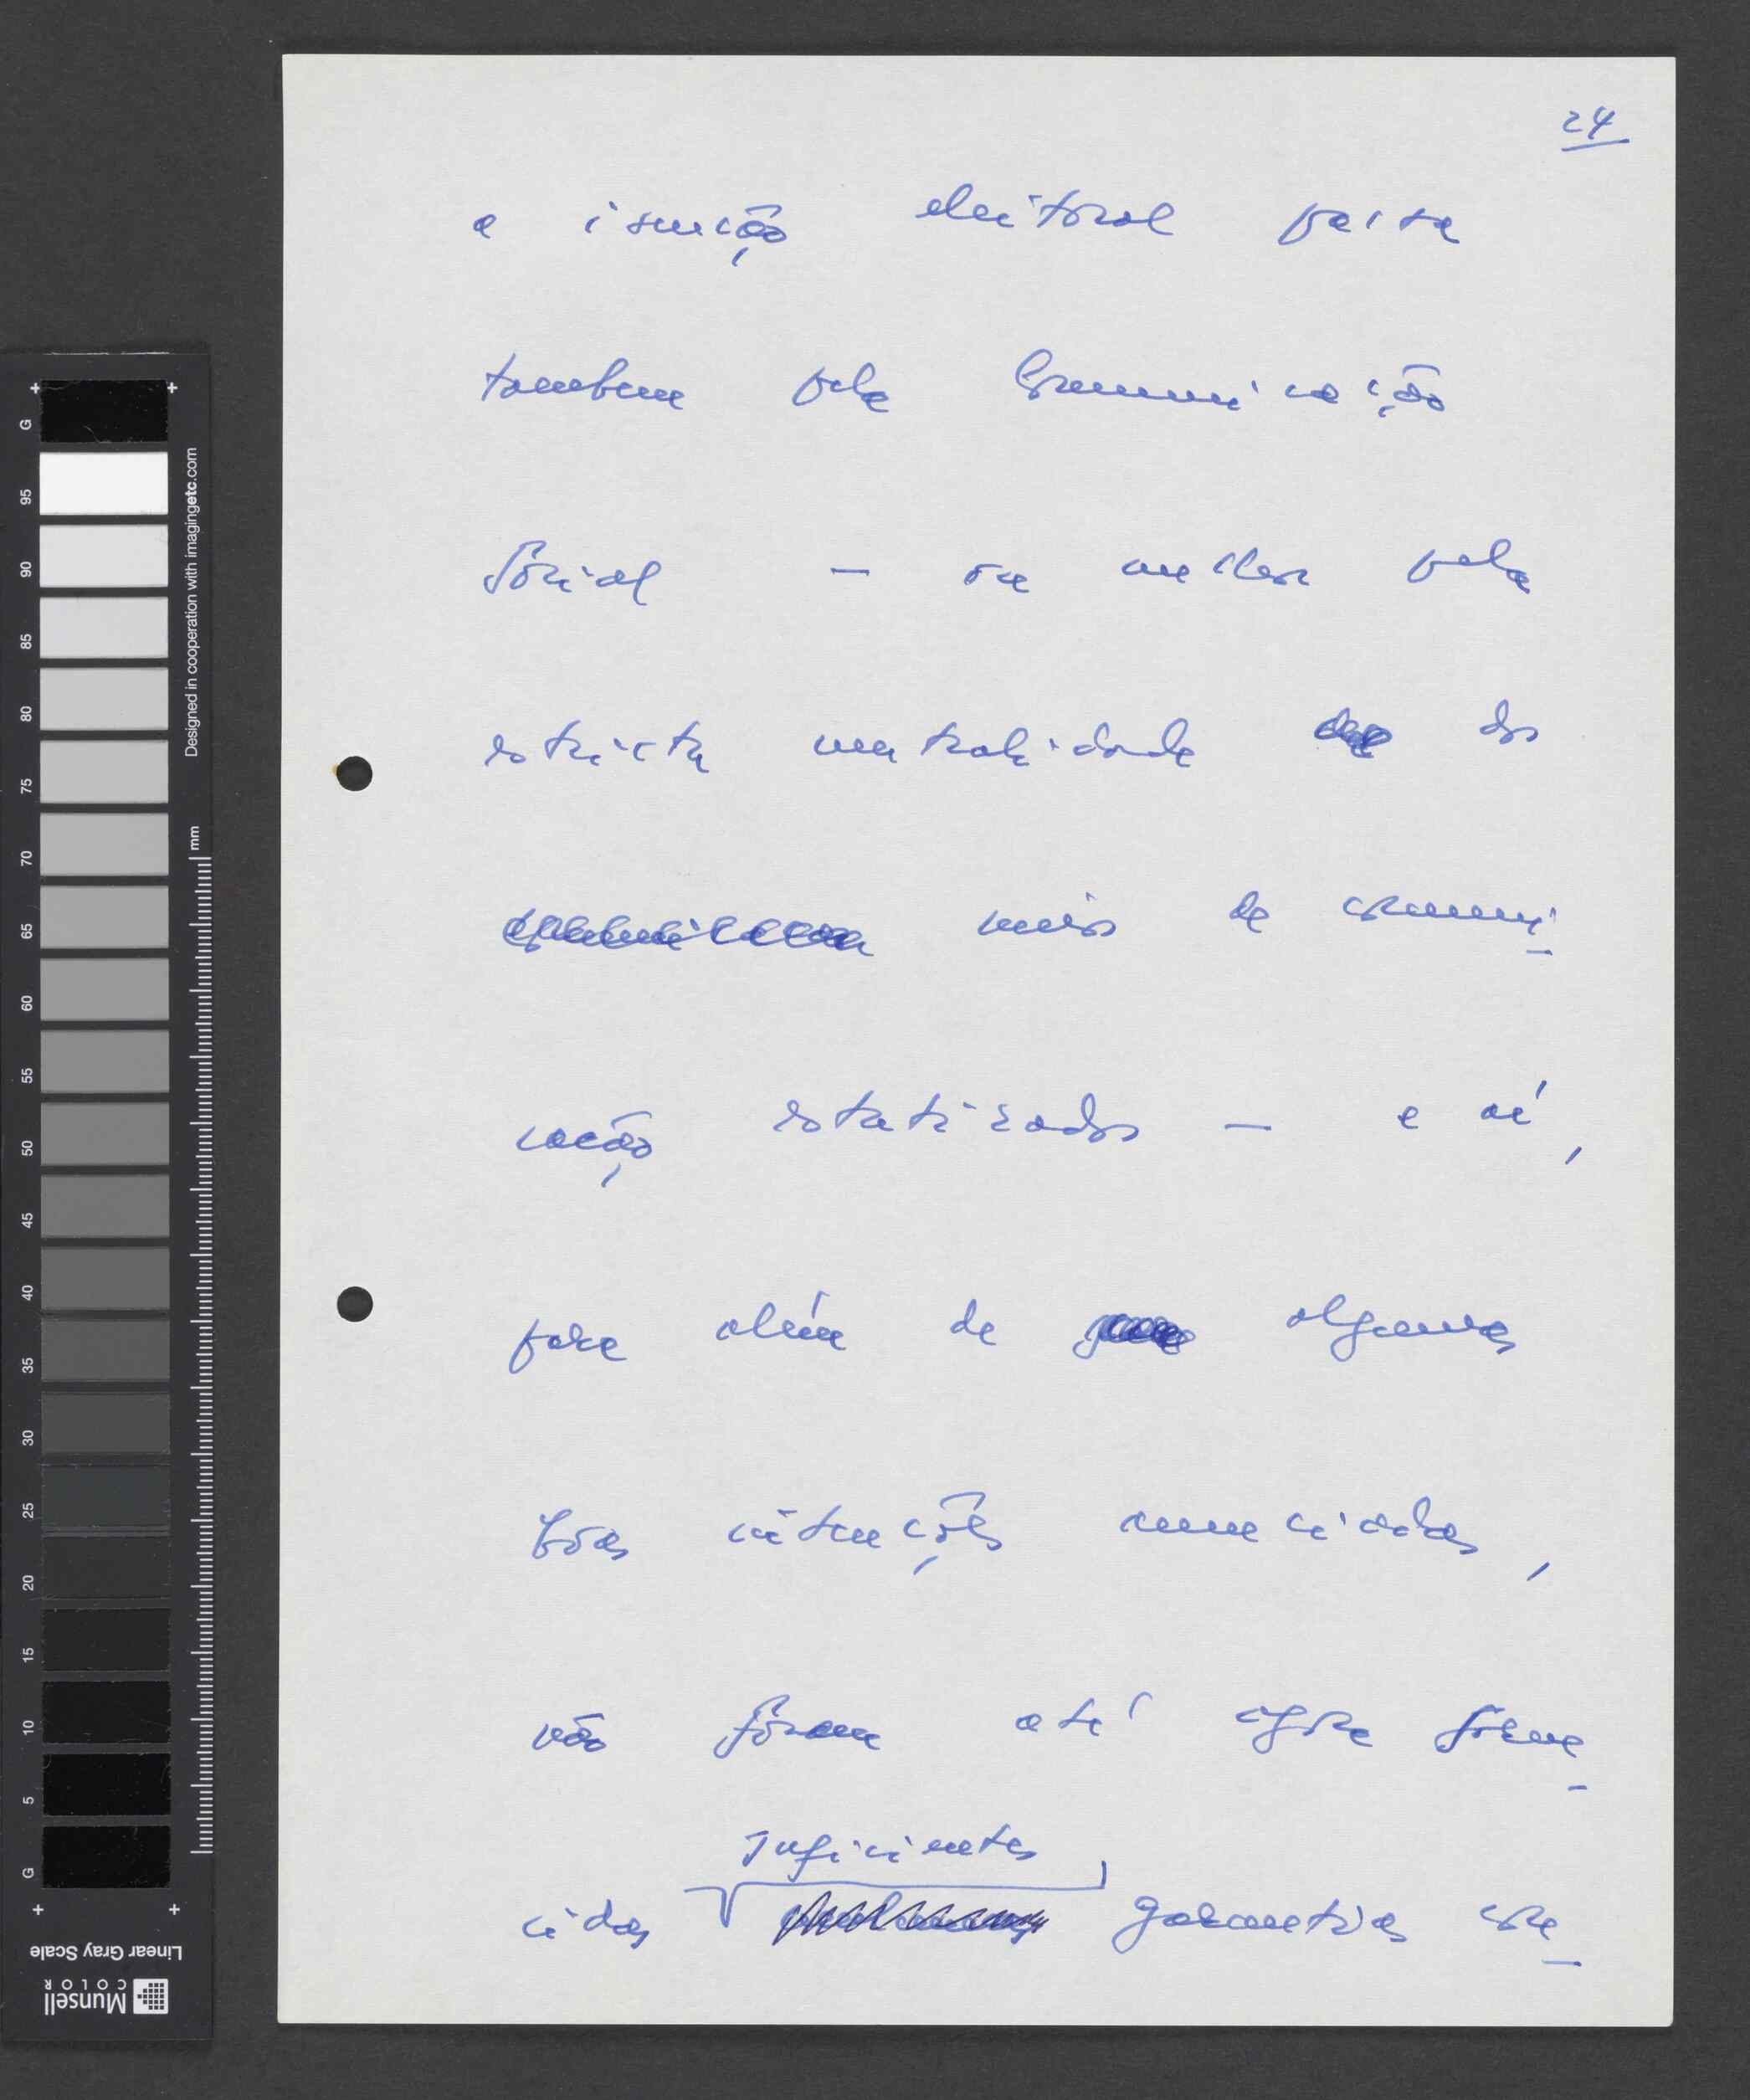 24
a isenção eleitoral passa
tambem pela Comunicação
Social — ou melhor pela
estricta neutralidade dos
meios de comuni-
cação estatizados — e aí,
para além de algumas
boas intenções anunciadas,
não foram até agora forne-
suficientes
cidas garantias co-
G
95
90
85
80
75
70
65
60
55
50
45
40
35
30
25
20
15
10
5
G
Designed in cooperation with imagingetc.com
mm
Linear Gray Scale
Munsell
COLOR